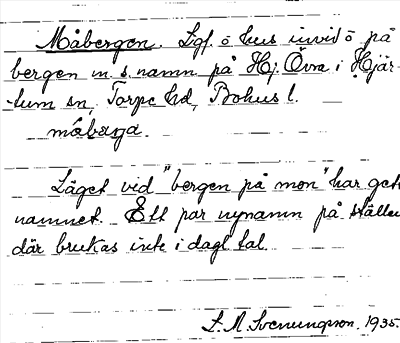 Måbergen. Lgf. o hus invid o på
bergen m. s. namn på Hj. Övra i Hjär-
tum sn, Torpe hd, Bohus l.
måbærga.
Läget vid "bergen på mon" har gett
namnet. Ett par nynamn på ställen
där brukas inte i dagl tal.
S. M. Svenungsson. 1935.